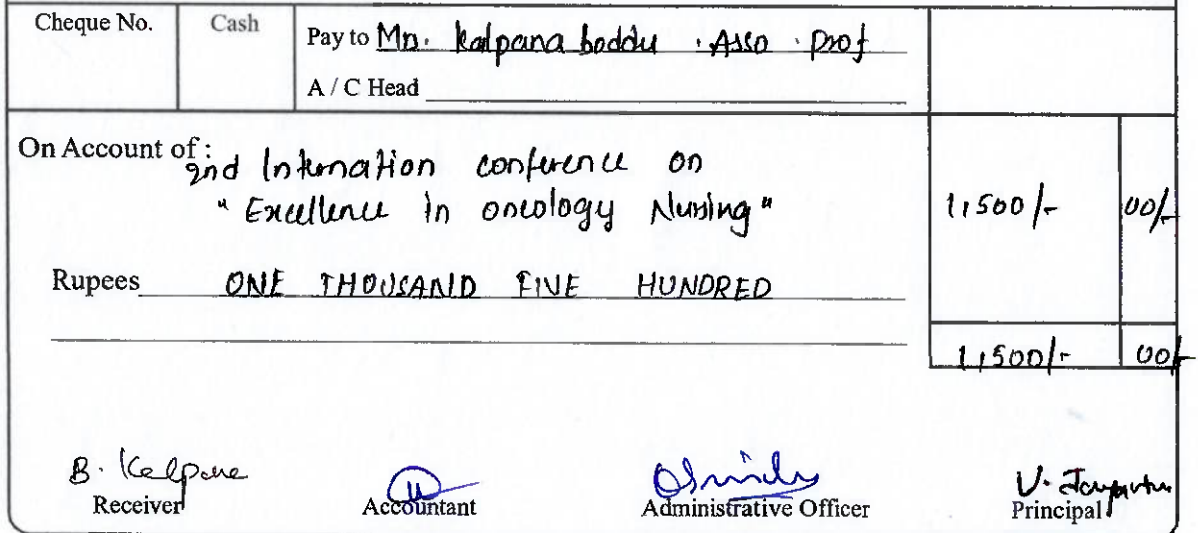 Cheque No. Cash Pay to Mn. kalpana boddu . Asso . prof
A / C Head
On Account of :
2nd Internation conference on
" Excellence in oncology Nursing " 1,500/- 00/-
Rupees ONE THOUSAND FIVE HUNDRED
1,500/- 00/-
B. Kalpana
Receiver Accountant Administrative Officer Principal